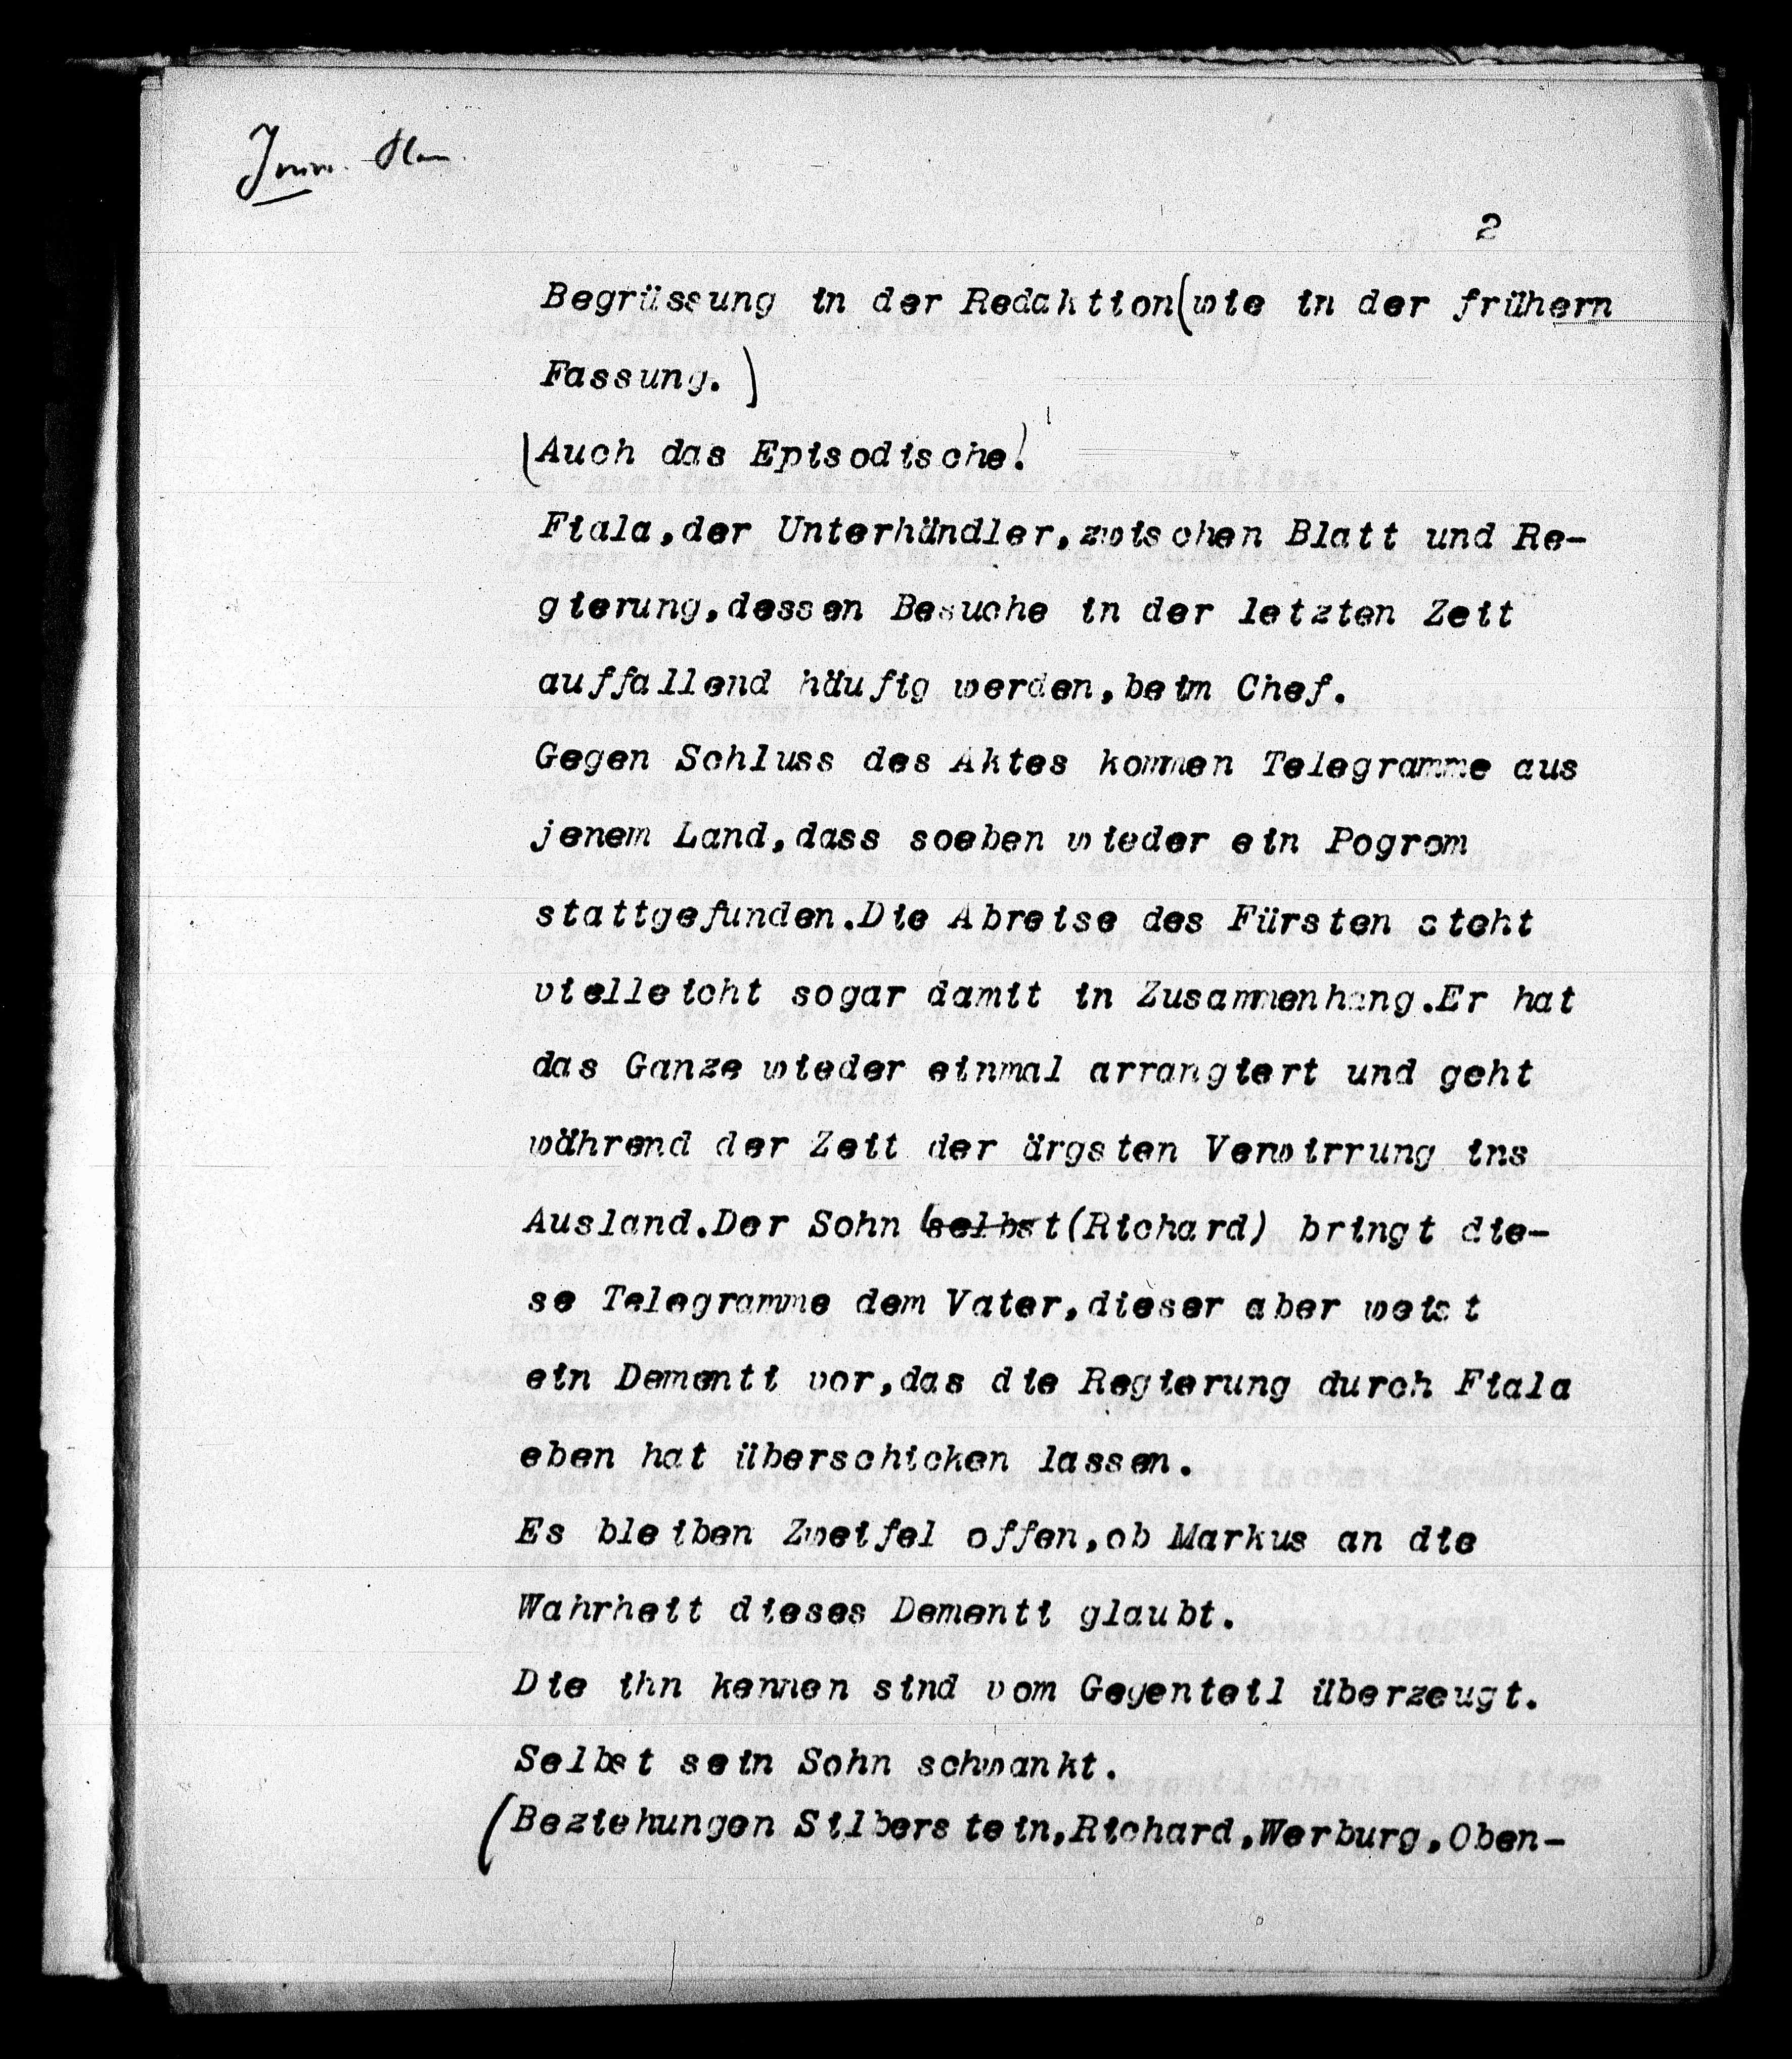 2
Begrüssung in der Redaktion(wie in der frühern
Fassung.)
(Auch das Episodische!)
Fiala,der Unterhändler,zwischen Blatt und Re-
gierung,dessen Besuche in der letzten Zeit
auffallend häufig werden,beim Chef.
Gegen Schluss des Aktes kommen Telegramme aus
jenem Land,dass soeben wieder ein Pogrom
stattgefunden.Die Abreise des Fürsten steht
vielleicht sogar damit in Zusammenhang.Er hat
das Ganze wieder einmal arrangiert und geht
während der Zeit der ärgsten Verwirrung ins
Ausland.Der Sohn selbst(Richard) bringt die-
se Telegramme dem Vater,dieser aber weist
ein Dementi vor,das die Regierung durch Fiala
eben hat überschicken lassen.
Es bleiben Zweifel offen,ob Markus an die
Wahrheit dieses Dementi glaubt.
Die ihn kennen sind vom Gegenteil überzeugt.
Selbst sein Sohn schwankt.
(Beziehungen Silberstein,Richard,Werburg,Oben-